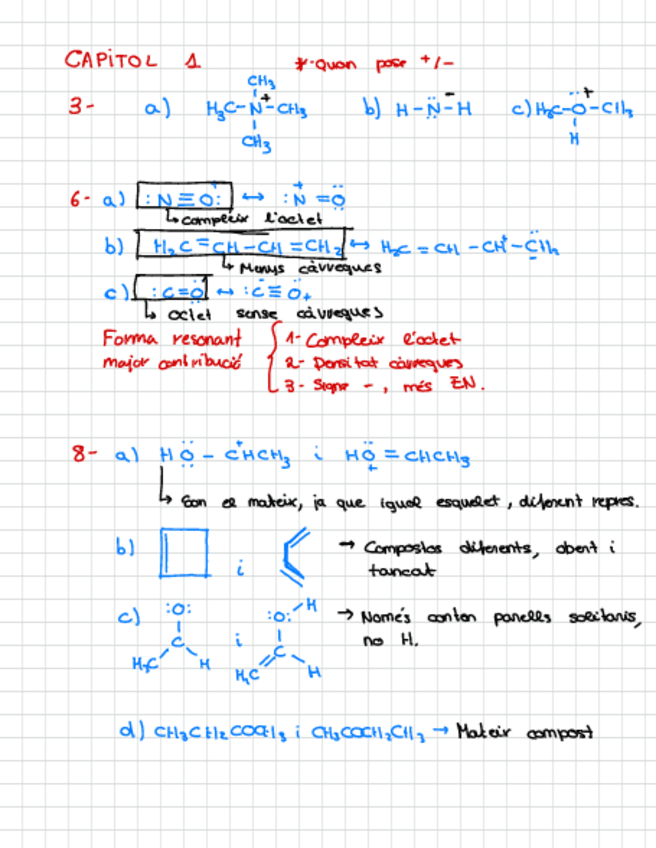 CAPÍTOL 1 *-Quan posar +/-
CH3
3- a) H3C-N⁺-CH3 b) H-N̈⁻-H c) H3C-Ö⁺-CH3
CH3 H
6- a) :N≡O: ↔ :N⁺=Ö
↳ Compleix l'octet
b) H2C=CH-CH=CH2 ↔ H2C=CH-CH⁺-C̈H2
↳ Menys càrregues
c) :C=Ö ↔ :C̄≡O+
↳ octet sense càrregues
Forma resonant
major contribució
1- Compleix l'octet
2- Densitat càrregues
3- Signe -, més EN.
8- a) HÖ - C⁺HCH3 i HÖ⁺=CHCH3
↳ Son el mateix, ja que igual esquelet, diferent repres.
b) i → Compostos diferents, obert i
tancat
c) :O: i :O: H → Només conten parells solitaris,
no H.
C C
H3C H H2C H
d) CH3CH2COCH3 i CH3COCH2CH3 → Mateix compost